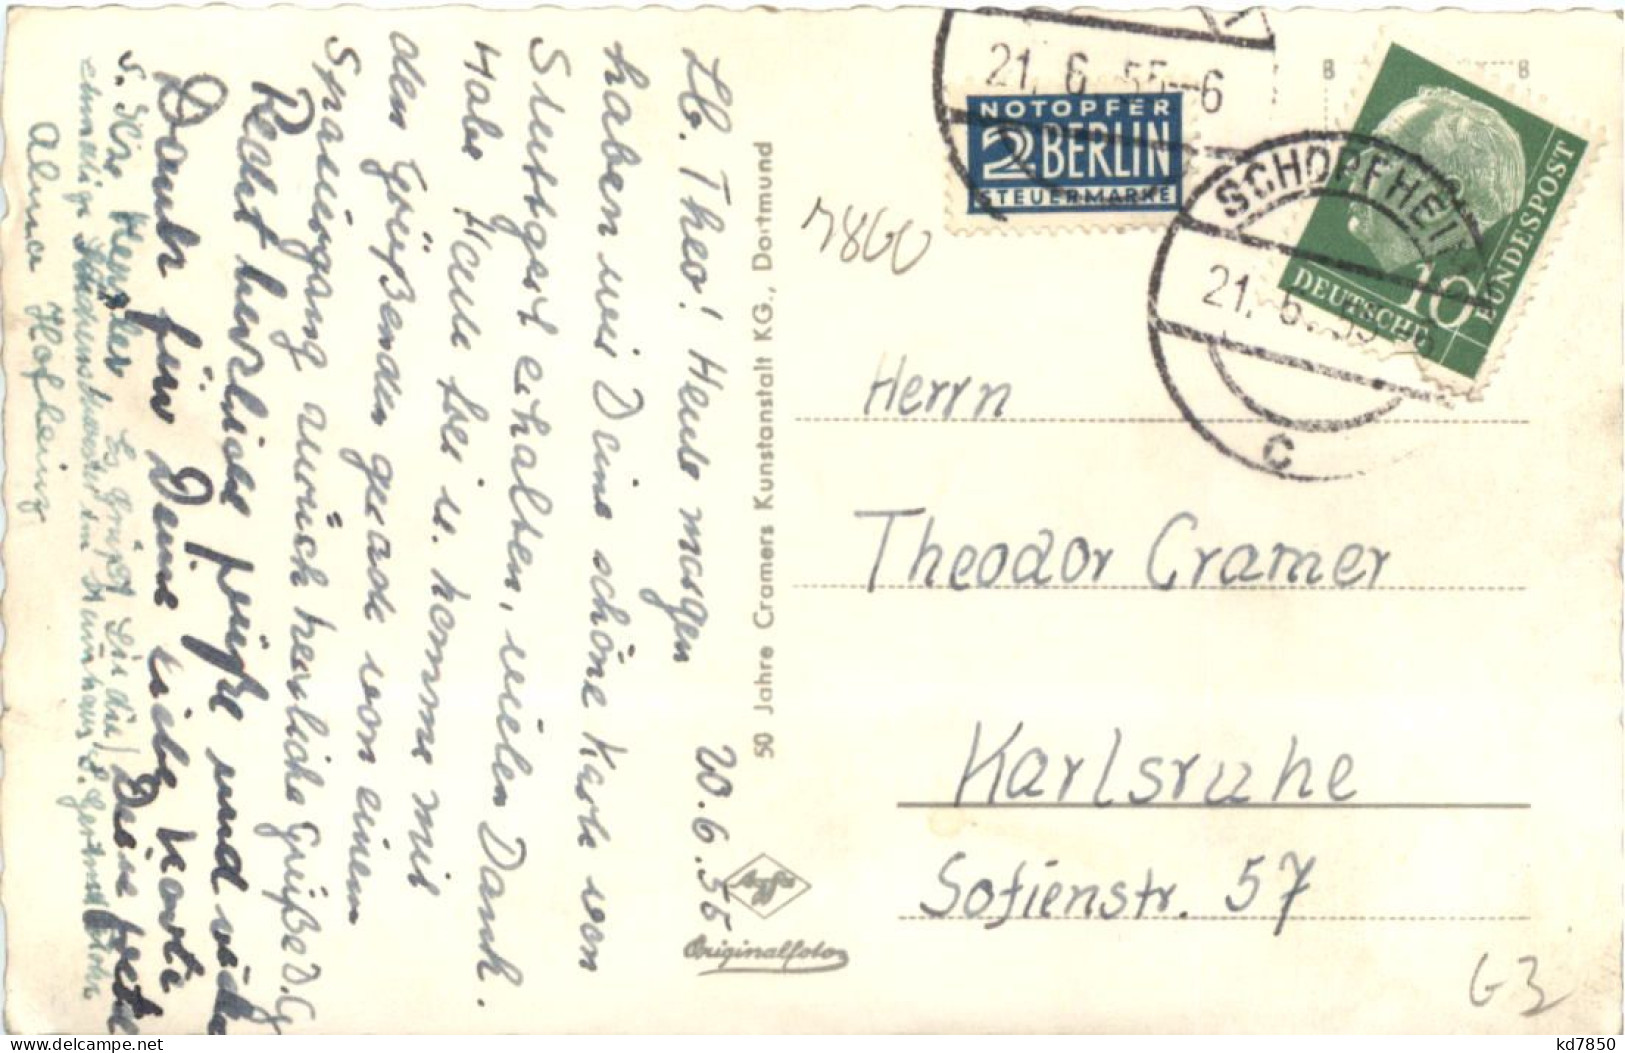 21. 6. 55-6
NOTOPFER
2 BERLIN
STEUERMARKE
SCHOPFHEIM
21. 6. 55-6
c
DEUTSCHE
BUNDESPOST
10
B B
7860
Herrn
Theodor Cramer
Karlsruhe
Sofienstr. 57
G 3
50 Jahre Cramers Kunstanstalt KG., Dortmund
Agfa
Originalfoto
20.6.55
Lb. Theo! Heute morgen
haben wir Deine schöne Karte von
Stuttgart erhalten, vielen Dank.
Habe Heute frei u. komme mit
den Grüßenden gerade von einem
Spaziergang zurück herzliche Grüße D.
Recht herzliche Grüße und
Dank für Deine liebe Karte
Deine
Es grüßt Sie die
ehmalige
Alma Hofheinz
kd7850